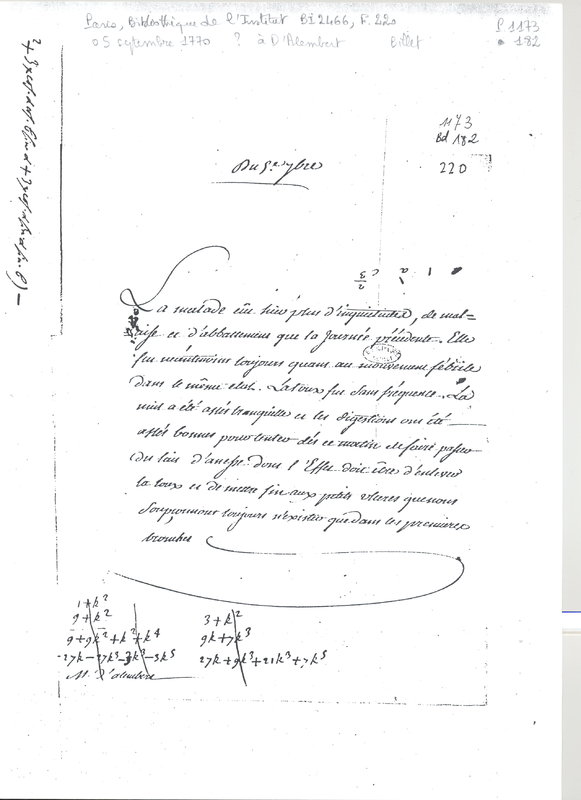 Paris, Bibliothèque de l'Institut BI 2466, F. 220
P 1173
05 septembre 1770 ? à D'Alembert Billet
182
1173
Bd 182
220
Du 5.e 7bre
1 à c
La malade eût hier plus d'inquiétudes, de mal=
aise et d'abbattement que la journée précédente. Elle
fut néantmoins toujours quant au mouvement fébrile
dans le même état. La toux fut sans fréquence. La
nuit a été assés tranquille et les digestions ont été
assés bonnes pour tenter dès ce matin de faire passer
du lait d'anesse dont l'Effet doit être d'enlever
la toux et de mettre fin aux petits ulceres que nous
soupçonnons toujours n'exister que dans les premieres
bronches
1+k²
9+k²
9+9k²+k²+k⁴
-27k-27k³-3k³-3k⁵
3+k²
9k+7k³
27k+9k³+21k³+7k⁵
M. D'alembert